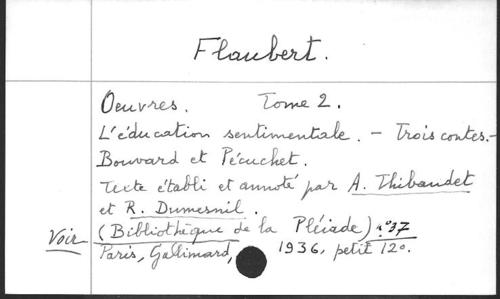 Flaubert.
Oeuvres. Tome 2.
L'éducation sentimentale. - Trois contes.-
Bouvard et Pécuchet.
Texte établi et annoté par A. Thibaudet
et R. Dumesnil.
Voir (Bibliothèque de la Pléiade) n°37
Paris, Gallimard, 1936, petit 12o.